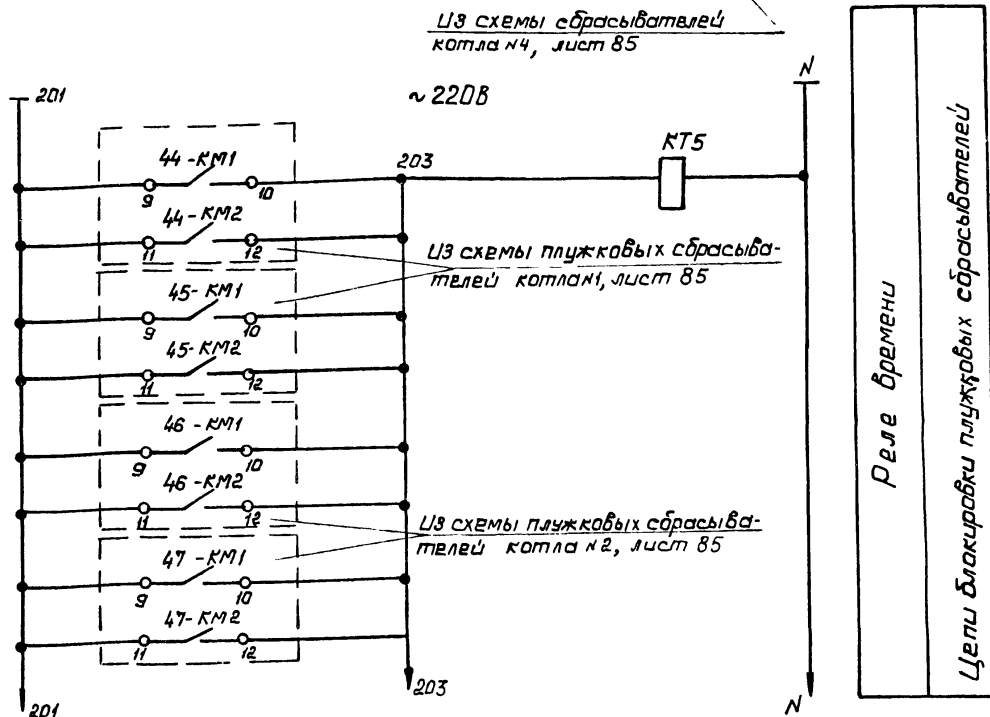 Из схемы сбрасывателей
котла №4, лист 85
201
~ 220В
N
44-КМ1
9
10
203
КТ5
44-КМ2
11
12
Из схемы плужковых сбрасыва-
телей котла №1, лист 85
45-КМ1
9
10
45-КМ2
11
12
46-КМ1
9
10
46-КМ2
11
12
Из схемы плужковых сбрасыва-
телей котла №2, лист 85
47-КМ1
9
10
47-КМ2
11
12
201
203
N
Реле времени
Цепи блокировки плужковых сбрасывателей